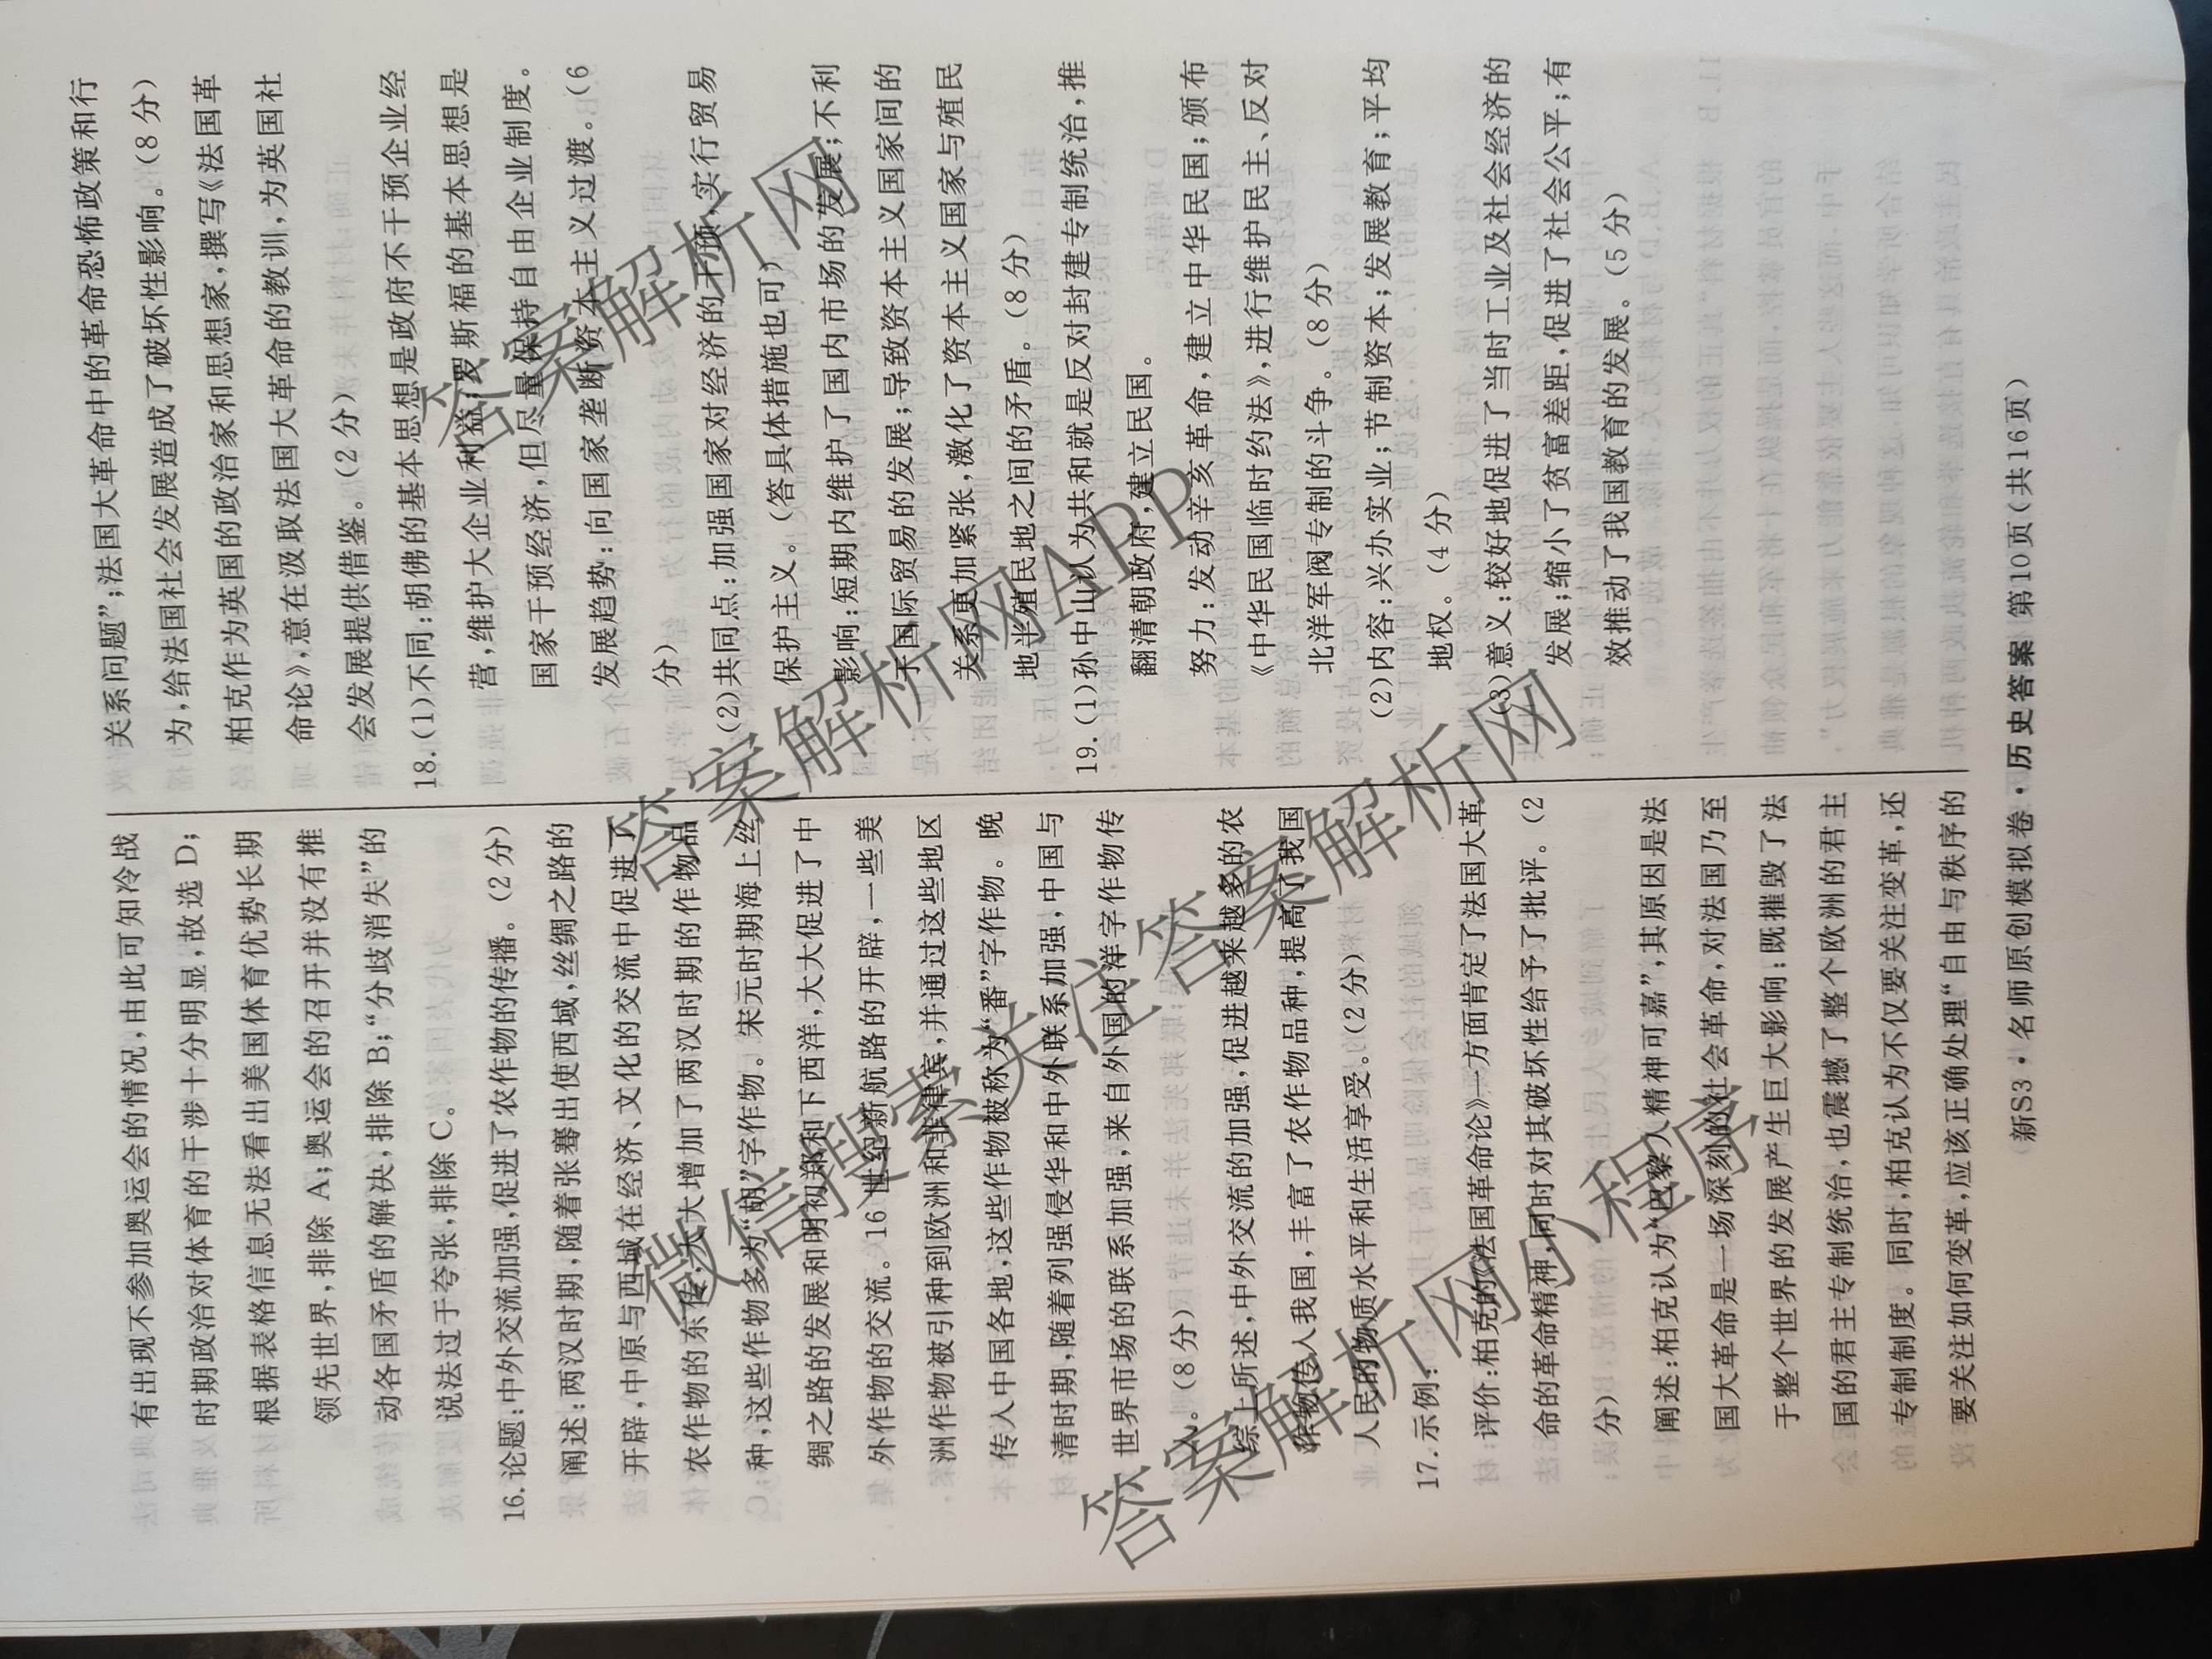 有出现不参加奥运会的情况,由此可知冷战
时期政治对体育的干涉十分明显,故选 D;
根据表格信息无法看出美国体育优势长期
领先世界,排除 A;奥运会的召开并没有推
动各国矛盾的解决,排除 B;“分歧消失”的
说法过于夸张,排除 C。
16.论题:中外交流加强,促进了农作物的传播。(2分)
阐述:两汉时期,随着张骞出使西域,丝绸之路的
开辟,中原与西域在经济、文化的交流中促进了
农作物的东传,大大增加了两汉时期的作物品
种,这些作物多为“胡”字作物。宋元时期海上丝
绸之路的发展和明初郑和下西洋,大大促进了中
外作物的交流。16世纪新航路的开辟,一些美
洲作物被引种到欧洲和菲律宾,并通过这些地区
传入中国各地,这些作物被称为“番”字作物。晚
清时期,随着列强侵华和中外联系加强,中国与
世界市场的联系加强,来自外国的洋字作物传
入。(8分)
综上所述,中外交流的加强,促进越来越多的农
作物传入我国,丰富了农作物品种,提高了我国
人民的物质水平和生活享受。(2分)
17.示例:
评价:柏克的《法国革命论》一方面肯定了法国大革
命的革命精神,同时对其破坏性给予了批评。(2
分)
阐述:柏克认为“巴黎人精神可嘉”,其原因是法
国大革命是一场深刻的社会革命,对法国乃至
于整个世界的发展产生巨大影响:既摧毁了法
国的君主专制统治,也震撼了整个欧洲的君主
专制制度。同时,柏克认为不仅要关注变革,还
要关注如何变革,应该正确处理“自由与秩序的
关系问题”;法国大革命中的革命恐怖政策和行
为,给法国社会发展造成了破坏性影响。(8分)
柏克作为英国的政治家和思想家,撰写《法国革
命论》,意在汲取法国大革命的教训,为英国社
会发展提供借鉴。(2分)
18.(1)不同:胡佛的基本思想是政府不干预企业经
营,维护大企业利益;罗斯福的基本思想是
国家干预经济,但尽量保持自由企业制度。
发展趋势:向国家垄断资本主义过渡。(6
分)
(2)共同点:加强国家对经济的干预,实行贸易
保护主义。(答具体措施也可)
影响:短期内维护了国内市场的发展;不利
于国际贸易的发展;导致资本主义国家间的
关系更加紧张,激化了资本主义国家与殖民
地半殖民地之间的矛盾。(8分)
19.(1)孙中山认为共和就是反对封建专制统治,推
翻清朝政府,建立民国。
努力:发动辛亥革命,建立中华民国;颁布
《中华民国临时约法》,进行维护民主、反对
北洋军阀专制的斗争。(8分)
(2)内容:兴办实业;节制资本;发展教育;平均
地权。(4分)
(3)意义:较好地促进了当时工业及社会经济的
发展;缩小了贫富差距,促进了社会公平;有
效推动了我国教育的发展。(5分)
新S3·名师原创模拟卷·历史答案 第10页(共16页)
答案解析网
答案解析网APP
微信搜索关注答案解析网
答案解析网小程序